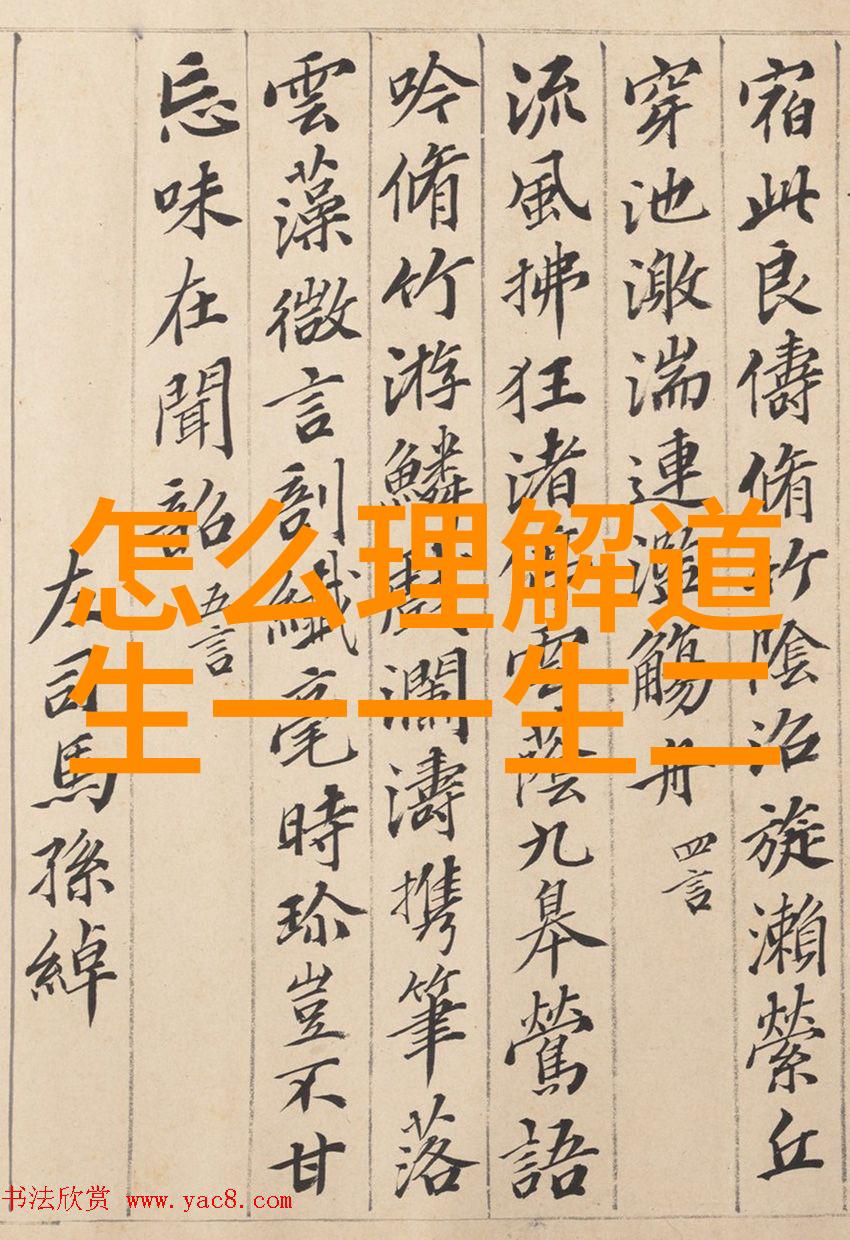 宿此良儔脩竹陰沼旋瀨縈丘
穿池激湍連濫觴舟
四言
流風拂狂渚停雲蔭九皋鶯語
吟脩竹游鱗戲瀾濤攜筆落
雲藻微言剖纖毫時珍豈不甘
忘味在聞韶
五言
左司馬孫綽
怎么理解道
生一一生二
书法欣赏 www.yac8.com